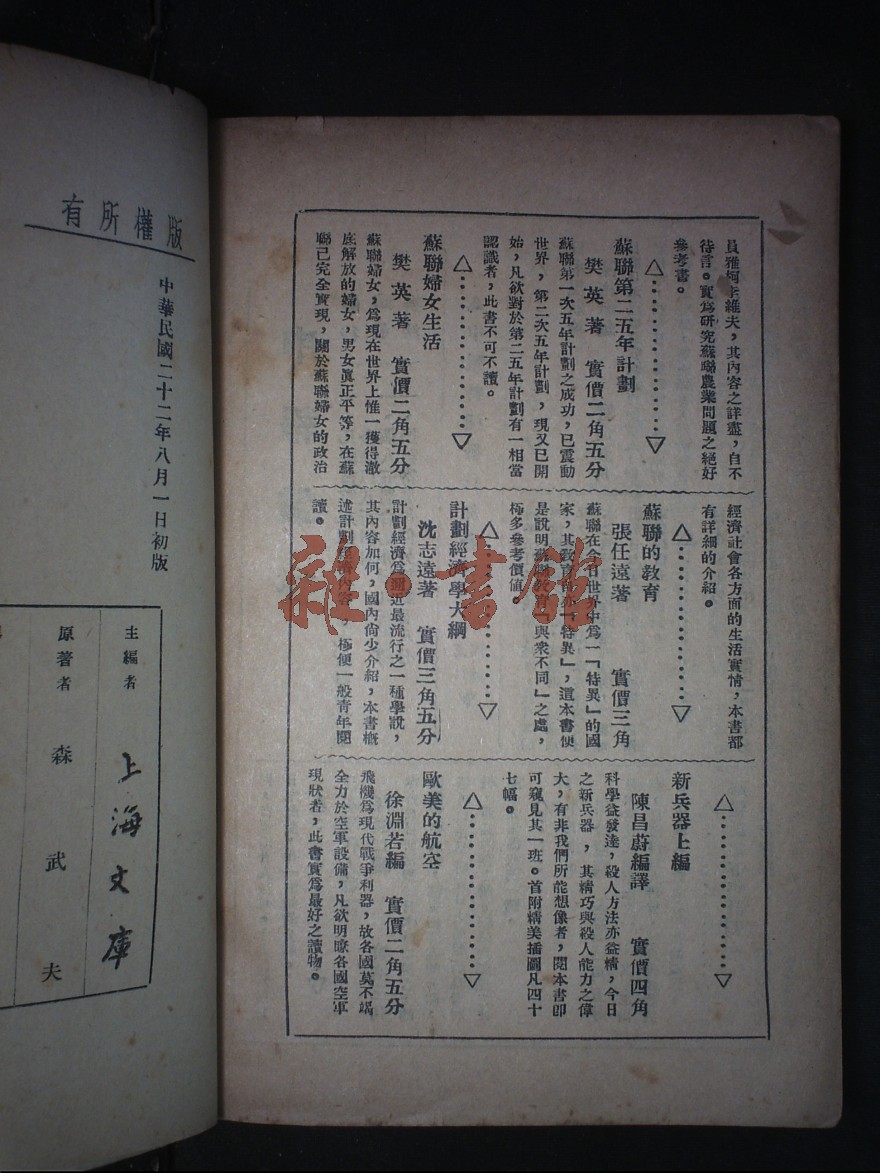 員雅柯辛維夫，其內容之詳盡，自不
待言。實爲研究蘇聯農業問題之絕好
參考書。
蘇聯第二五年計劃
樊英著　實價二角五分
蘇聯第一次五年計劃之成功，已震動
世界，第二次五年計劃，現又已開
始，凡欲對於第二五年計劃有一相當
認識者，此書不可不讀。
蘇聯婦女生活
樊英著　實價二角五分
蘇聯婦女，爲現在世界上惟一獲得澈
底解放的婦女，男女眞正平等，在蘇
聯已完全實現，關於蘇聯婦女的政治
經濟社會各方面的生活實情，本書都
有詳細的介紹。
蘇聯的教育
張任遠著　實價三角
蘇聯在今日世界中爲一「特異」的國
家，其教育亦「特異」，這本書便
是說明蘇聯教育「與衆不同」之處，
極多參考價值。
計劃經濟學大綱
沈志遠著　實價三角五分
計劃經濟爲邇近最流行之一種學說，
其內容如何，國內尙少介紹，本書概
述計劃經濟內容，極便一般靑年閱
讀。
新兵器上編
陳昌蔚編譯　實價四角
科學益發達，殺人方法亦益精，今日
之新兵器，其精巧與殺人能力之偉
大，有非我們所能想像者，閱本書卽
可窺見其一班。首附精美插圖凡四十
七幅。
歐美的航空
徐淵若編　實價二角五分
飛機爲現代戰爭利器，故各國莫不竭
全力於空軍設備，凡欲明瞭各國空軍
現狀者，此書實爲最好之讀物。
版權所有
中華民國二十二年八月一日初版
主編者　上海文庫
原著者　森武夫
雜·書館